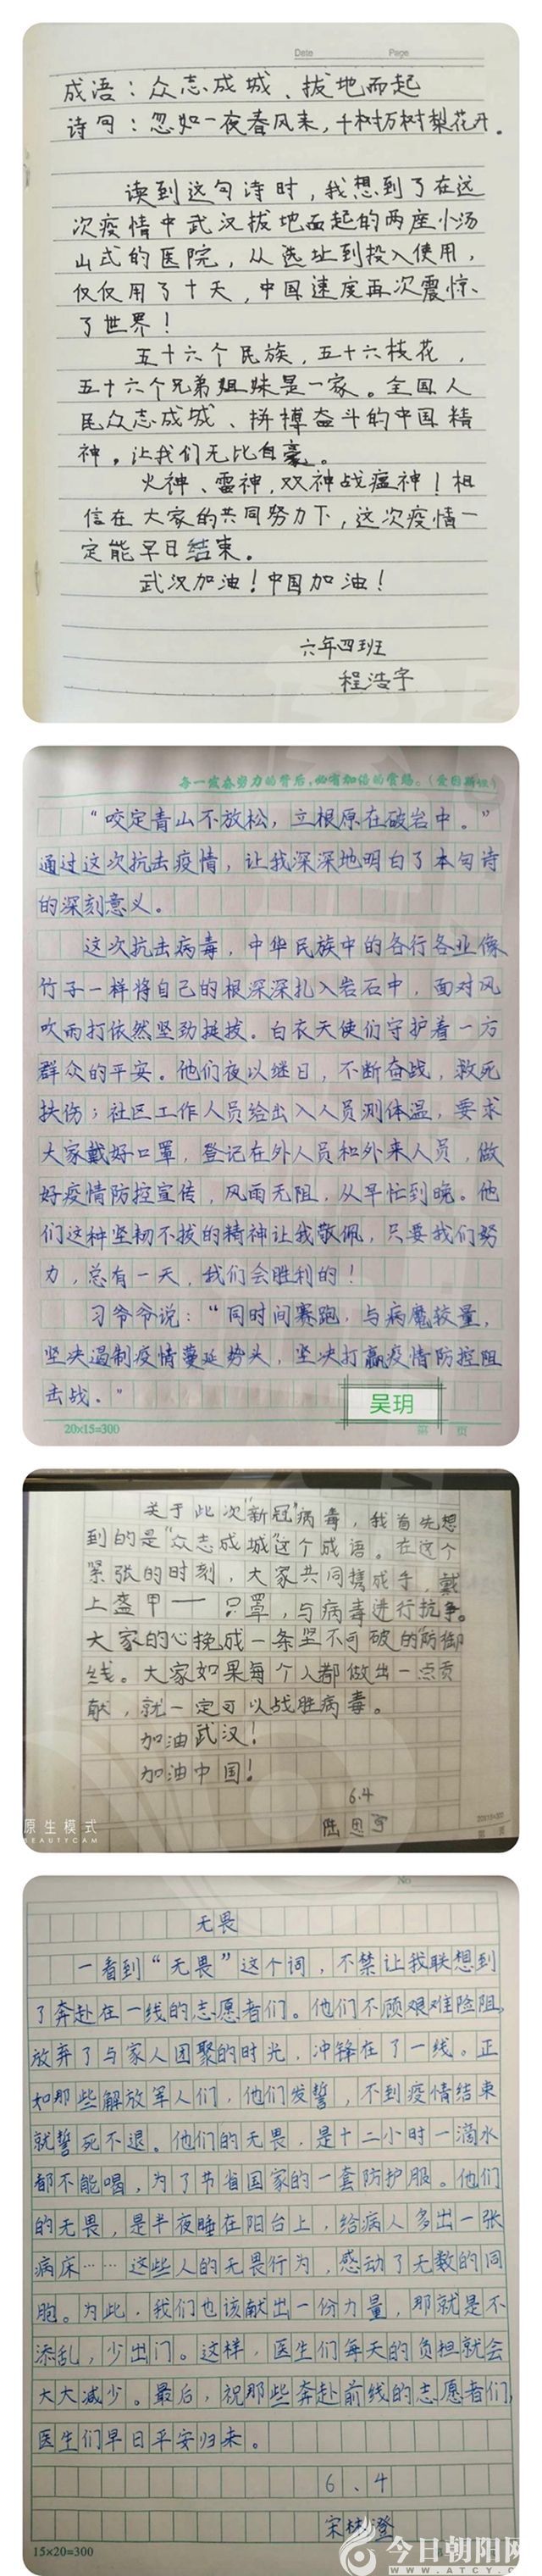 Date Page
成语：众志成城、拔地而起
诗句：忽如一夜春风来，千树万树梨花开。
读到这句诗时，我想到了在这
次疫情中武汉拔地而起的两座小汤
山式的医院，从选址到投入使用，
仅仅用了十天，中国速度再次震惊
了世界！
五十六个民族，五十六枝花，
五十六个兄弟姐妹是一家。全国人
民众志成城、拼搏奋斗的中国精
神，让我们无比自豪。
火神、雷神，双神战瘟神！相
信在大家的共同努力下，这次疫情一
定能早日结束。
武汉加油！中国加油！
六年四班
程浩宇
每一份奋努力的背后，必有加倍的赏赐。（爱因斯坦）
“咬定青山不放松，立根原在破岩中。”
通过这次抗击疫情，让我深深地明白了本句诗
的深刻意义。
这次抗击病毒，中华民族中的各行各业像
竹子一样将自己的根深深扎入岩石中，面对风
吹雨打依然坚劲挺拔。白衣天使们守护着一方
群众的平安。他们夜以继日，不断奋战，救死
扶伤；社区工作人员给出入人员测体温，要求
大家戴好口罩，登记在外人员和外来人员，做
好疫情防控宣传，风雨无阻，从早忙到晚。他
们这种坚韧不拔的精神让我敬佩，只要我们努
力，总有一天，我们会胜利的！
习爷爷说：“同时间赛跑，与病魔较量，
坚决遏制疫情蔓延势头，坚决打赢疫情防控阻
击战。”
吴玥
20×15=300 第 页
关于此次“新冠”病毒，我首先想
到的是“众志成城”这个成语。在这个
紧张的时刻，大家共同携成手，戴
上盔甲——口罩，与病毒进行抗争。
大家的心挽成一条坚不可破的“防御
线。大家如果每个人都做出一点贡
献，就一定可以战胜病毒。
加油武汉！
加油中国！
6.4
陆思
原生模式
BEAUTYCAM
No
无畏
一看到“无畏”这个词，不禁让我联想到
了奔赴在一线的志愿者们。他们不顾艰难险阻，
放弃了与家人团聚的时光，冲锋在了一线。正
如那些解放军人们，他们发誓，不到疫情结束
就誓死不退。他们的无畏，是十二小时一滴水
都不能喝，为了节省国家的一套防护服。他们
的无畏，是半夜睡在阳台上，给病人多出一张
病床……这些人的无畏行为，感动了无数的同
胞。为此，我们也该献出一份力量，那就是不
添乱，少出门。这样，医生们每天的负担就会
大大减少。最后，祝那些奔赴前线的志愿者们，
医生们早日平安归来。
6、4
宋林澄
15×20=300
今日朝阳网
WWW.ATCY.CN